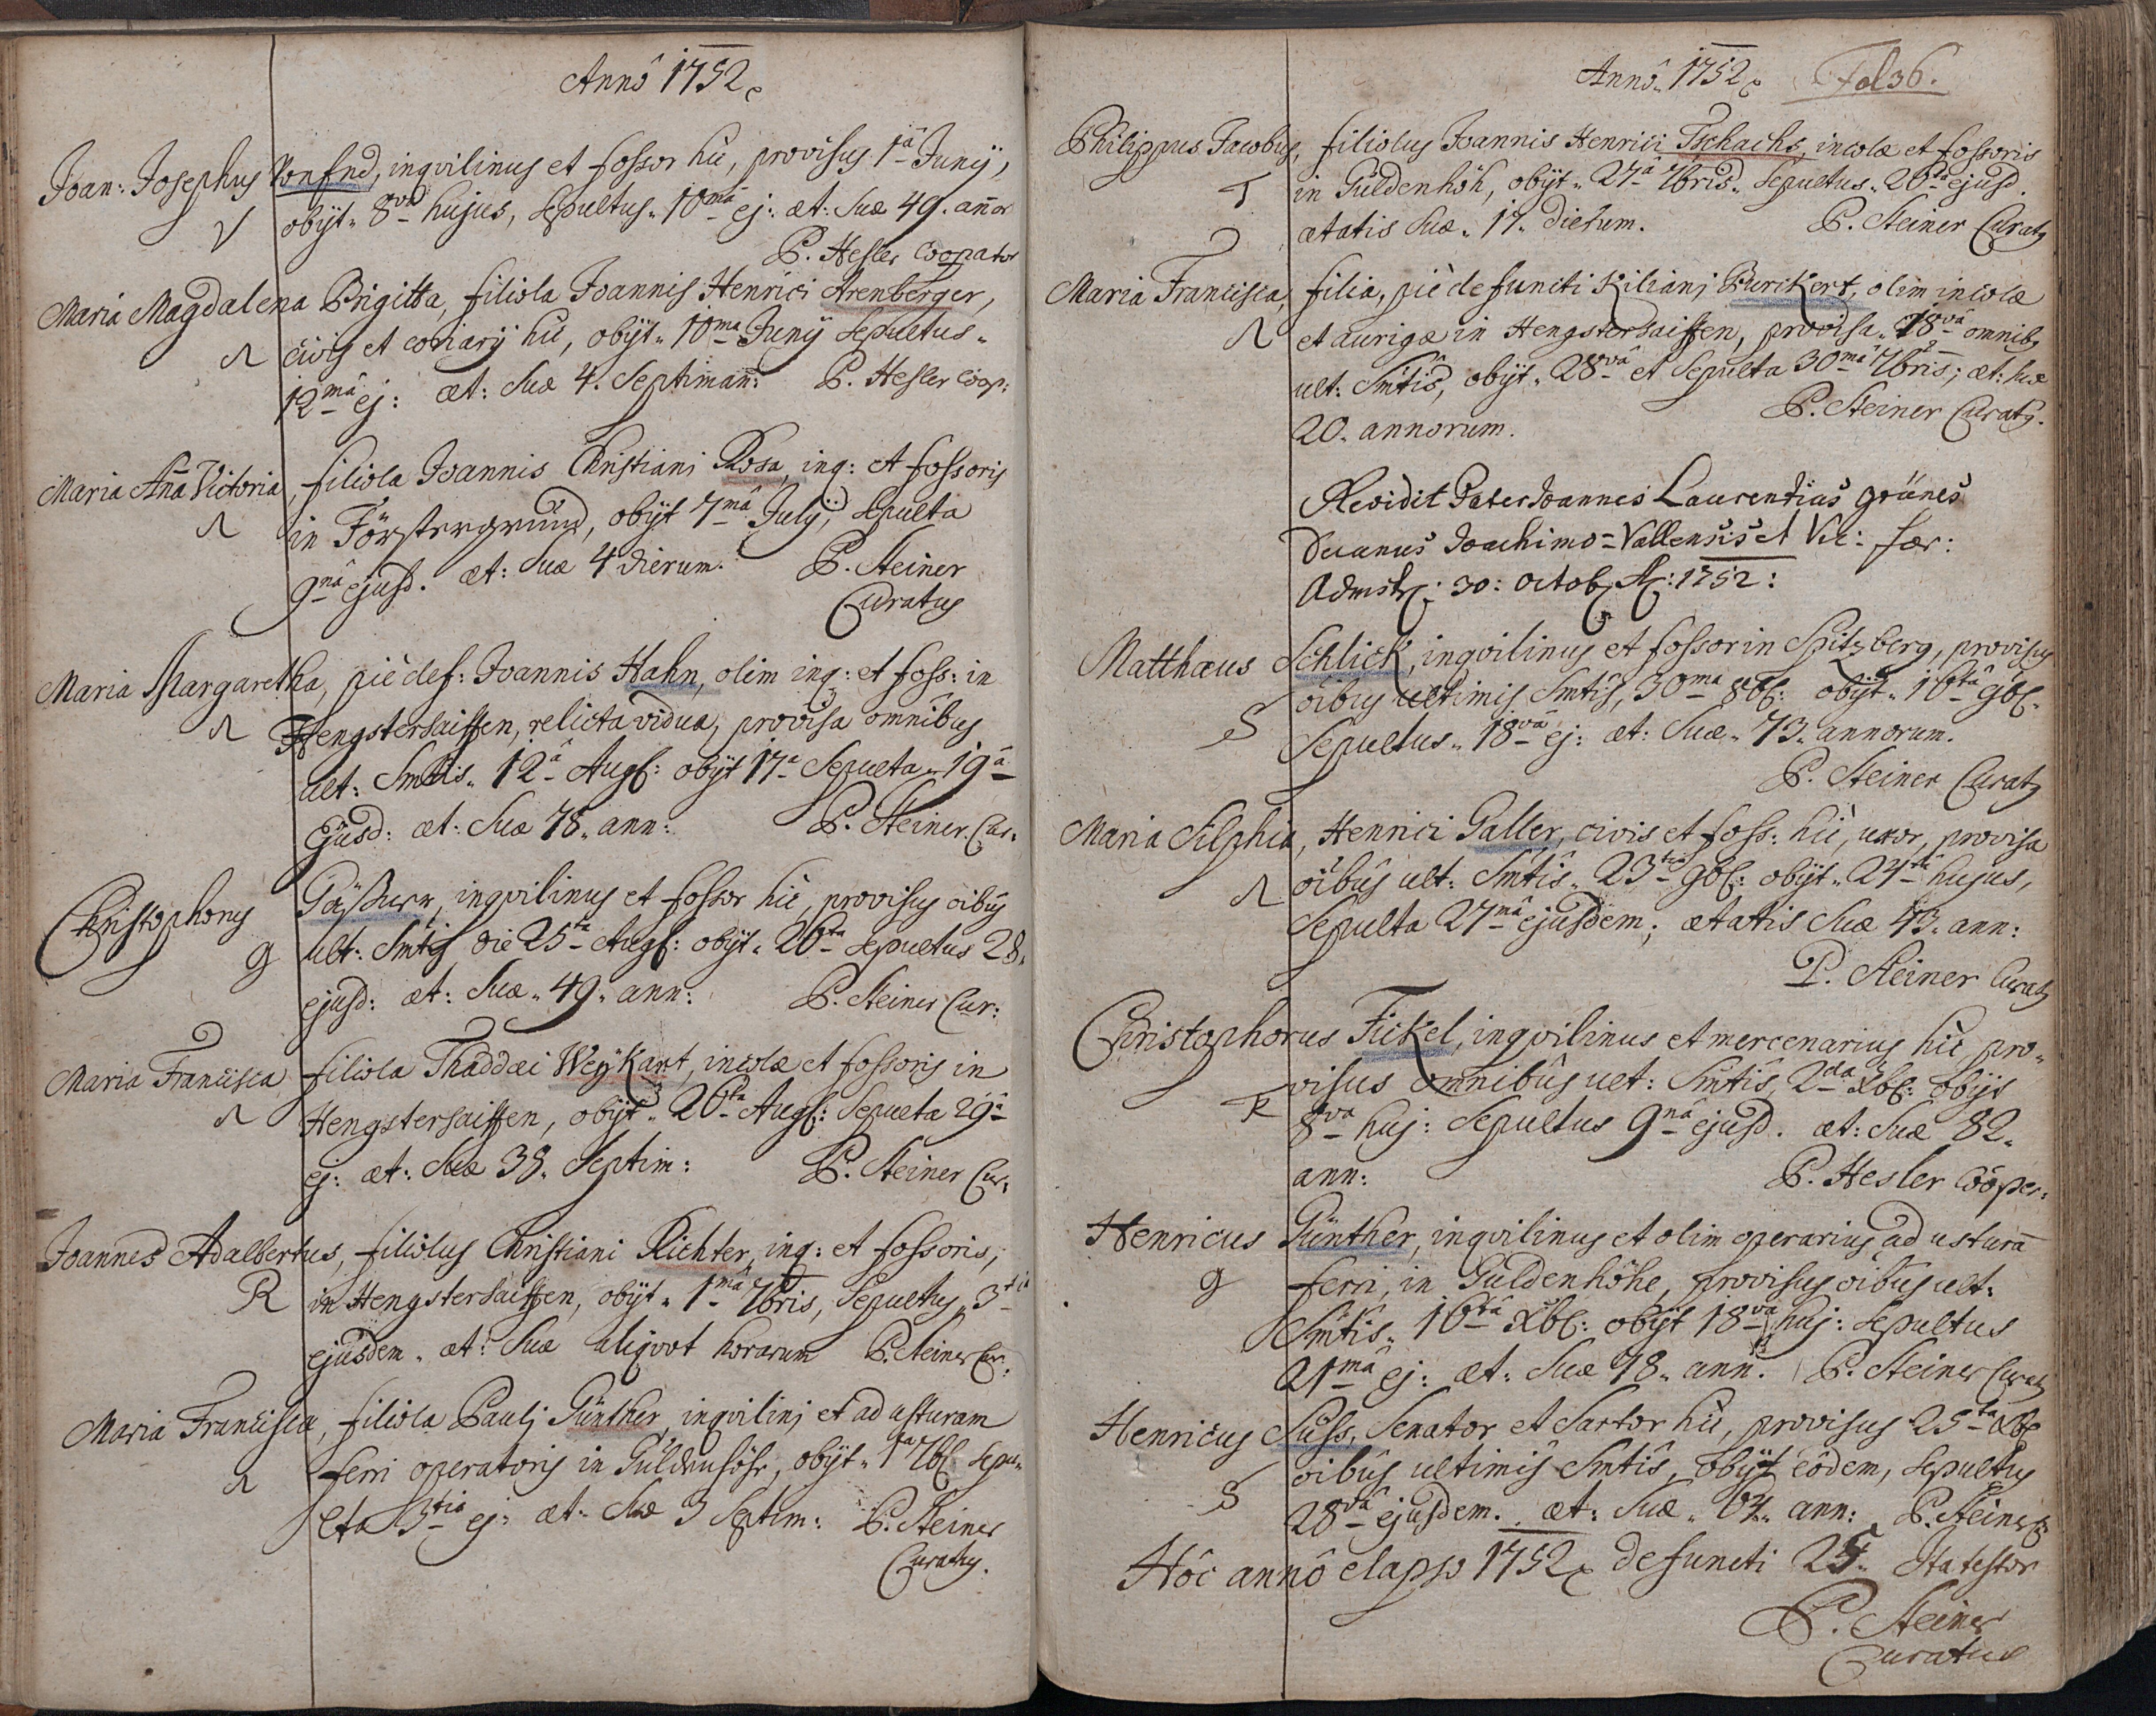 Annô 1752
Joan: Josephus Vonfnd, inqvilinus et fossor hic, provisus 1â Junÿ,
V obÿt 8vâ hujus, sepultus 10mâ ej: æt: suæ 49. añor
P. Hesler Cooperator
Maria Magdalena Brigitta, filiola Joannis Henrici Arenberger,
civis et coriarÿ hic, obÿt 10ma Junÿ sepultus
12mâ ej: æt: suæ 4. Septimañ: P. Hesler Coop:
Maria Aña Victoria, filiola Joannis Christiani Rosa, inq: et fossoris
in Förstergrund, obÿt 7mâ Julÿ, sepulta
9nâ ejusd. æt: suæ 4 dierum. P. Steiner
Curatus
Maria Margaretha, piè def: Joannis Hahn, olim inq: et foss: in
Hengstersaissen, relicta vidua, provisa omnibus
ult: Smtis 12â Augs: obÿt 17â Sepulta 19â
Ejusd: æt: suæ 78. ann: P. Steiner Cur:
Christophorus inqvilinus et fossor hic, provisus oibus
g ult: Smtis die 25ta Augs: obÿt 26ta sepultus 28.
ejusd: æt: suæ 49 ann: P. Steiner Cur:
Maria Francisca filiola Thaddæi Weÿkart, incolæ et fossoris in
Hengstersaissen, obÿt 26ta Augs: Sepulta 29â
ej: æt: suæ 38. Septim: P. Steiner Cur:
Joannes Adalbertus, filiolus Christiani Richter, inq: et fossoris,
R in Hengstersaissen, obÿt 1mâ 7bris, Sepultus 3tia
ejusdem æt: suæ aliqvot horarum P. Steiner Cur:
Maria Francisca, filiola Paulj Günther, inqvilinj et ad usturam
ferri operatoris in Güldenhöhe, obÿt 1a 7bs sepu-
lta 3tia ej: æt: suæ 3 Septim: P. Steiner
Curatus.
Annô 1752 Fol 36.
Philippus Jacobus, filiolus Joannis Henrici Tschachs, incolæ et fossoris
T in Güldenhöh, obÿt 27â 7bris Sepultus 28 ejusd.
ætatis suæ 17 dierum. P. Steiner Curatus
Maria Francisca, filia, piè defuncti Kilianj Burikert, olim incolæ
et aurigæ in Hengstersaissen, provisa 18vâ omnibus
ult: Smtis, obÿt 28vâ et Sepulta 30mâ 7bris; æt: suæ
20. annorum. P. Steiner Curatus.
Revidit Pater Joannes Laurentius Grünes
Decanus Joachimo-Vallensis et Vic: for:
Admstr: 30: octob A: 1752:
Matthæus Schlick, inqvilinus et fossor in Spitzberg, provisus
S oibus ultimis Smtis, 30ma 8bs: obÿt 16tâ 9bs.
Sepultus 18vâ ej: æt: suæ 73. annorum.
P. Steiner Curatus
Maria Silphia, Henrici Galler, civis et foss: hic, uxor, provisa
oibus ult: Smtis 23tia 9bs: obÿt 24tâ hujus,
Sepulta 27mâ ejusdem; ætatis suæ 43. ann:
P. Steiner Curatus
Christophorus Fickel, inqvilinus et mercenarius hic, pro-
visus omnibus ult: Smtis, 2da Xbs: obÿt
8va huj: Sepultus 9nâ ejusd. æt: suæ 82.
ann: P. Hesler Cööper:
Henricus Günther, inqvilinus et olim operarius ad usturã
g ferri, in Güldenhöhe, provisus oibus ult:
Smtis 16tâ Xbs: obÿt 18va huj: sepultus
21mâ ej: æt: suæ 78. ann: P. Steiner Curatus
Henricus Süss, Senator et Sartor hic, provisus 25ta Xbs
S oibus ultimis Smtis, obÿt eôdem, sepultus
28vâ ejusdem. æt: suæ 64. ann: P. Steiner C:
Hôc annô elapso 1752 defuncti 25. Ita testor
P. Steiner
Curatus